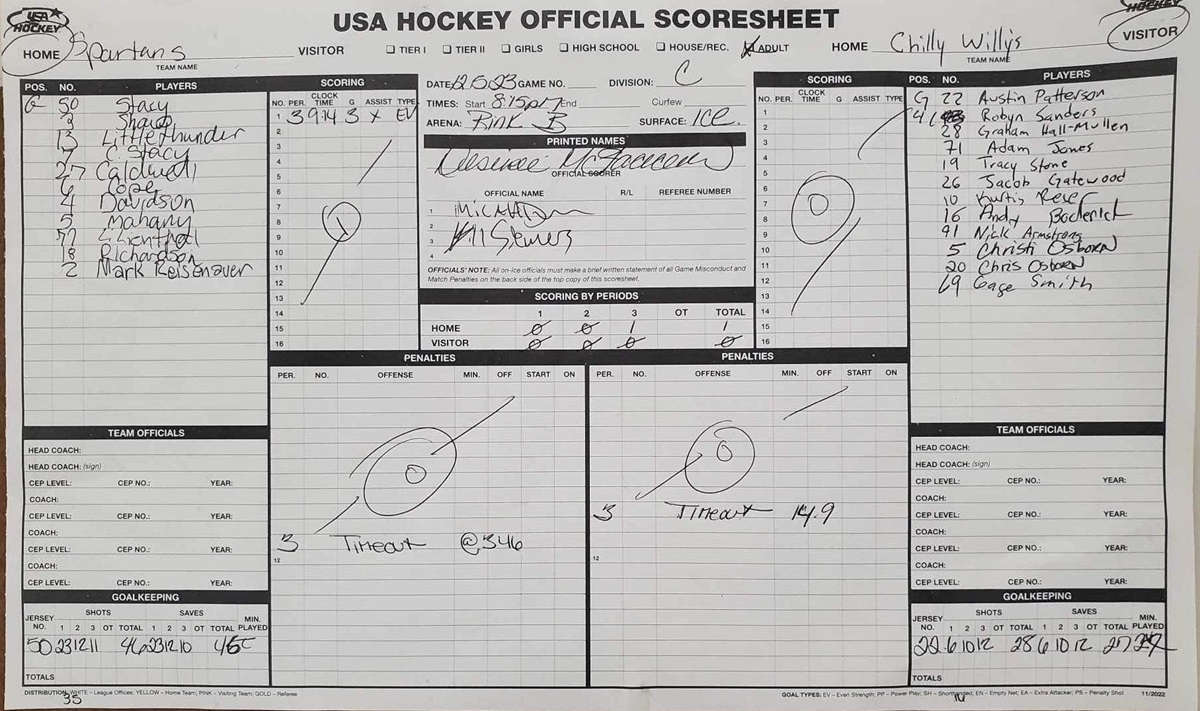 USA HOCKEY OFFICIAL SCORESHEET
USA HOCKEY
HOCKEY
HOME Spartans VISITOR
TEAM NAME
TIER I TIER II GIRLS HIGH SCHOOL HOUSE/REC. ADULT
HOME Chilly Willy's VISITOR
TEAM NAME
POS. NO. PLAYERS
G 50 Stacy
Shaw
13 Littlethunder
7 C. Stacy
27 Caldwell
6 Cope
4 Davidson
5 Mahany
77 Lilienthal
18 Richardson
2 Mark Reisenauer
SCORING
NO. PER. CLOCK TIME G ASSIST TYPE
1 3 9:14 3 x EV
2
3
4
5
6
7
8
9
10
11
12
13
14
15
16
1
DATE: 12 5 23 GAME NO. DIVISION: C
TIMES: Start 8:15pm End Curfew
ARENA: Rink B SURFACE: Ice
PRINTED NAMES
OFFICIAL SCORER
OFFICIAL NAME R/L REFEREE NUMBER
1
2
3
4
OFFICIALS' NOTE: All on-ice officials must make a brief written statement of all Game Misconduct and
Match Penalties on the back side of the top copy of this scoresheet.
SCORING BY PERIODS
1 2 3 OT TOTAL
HOME 0 0 1 1
VISITOR 0 0 0 0
SCORING
NO. PER. CLOCK TIME G ASSIST TYPE
1
2
3
4
5
6
7
8
9
10
11
12
13
14
15
16
0
POS. NO. PLAYERS
G 22 Austin Patterson
Robyn Sanders
28 Graham Hall-Mullen
71 Adam Jones
19 Tracy Stone
26 Jacob Gatewood
10 Kurtis Reser
16 Andy Boderick
91 Nick Armstrong
5 Christi Osborn
20 Chris Osborn
69 Gage Smith
PENALTIES
PER. NO. OFFENSE MIN. OFF START ON
0
3 Timeout @ 346
12
PENALTIES
PER. NO. OFFENSE MIN. OFF START ON
0
3 Timeout 14.9
12
TEAM OFFICIALS
HEAD COACH:
HEAD COACH: (sign)
CEP LEVEL: CEP NO.: YEAR:
COACH:
CEP LEVEL: CEP NO.: YEAR:
COACH:
CEP LEVEL: CEP NO.: YEAR:
COACH:
CEP LEVEL: CEP NO.: YEAR:
GOALKEEPING
SHOTS SAVES
JERSEY NO. 1 2 3 OT TOTAL 1 2 3 OT TOTAL MIN. PLAYED
50 23 12 11 46 23 12 10 45
TOTALS
TEAM OFFICIALS
HEAD COACH:
HEAD COACH: (sign)
CEP LEVEL: CEP NO.: YEAR:
COACH:
CEP LEVEL: CEP NO.: YEAR:
COACH:
CEP LEVEL: CEP NO.: YEAR:
COACH:
CEP LEVEL: CEP NO.: YEAR:
GOALKEEPING
SHOTS SAVES
JERSEY NO. 1 2 3 OT TOTAL 1 2 3 OT TOTAL MIN. PLAYED
22 6 10 12 28 6 10 12 27
TOTALS
DISTRIBUTION: WHITE – League Offices; YELLOW – Home Team; PINK – Visiting Team; GOLD – Referee
GOAL TYPES: EV – Even Strength; PP – Power Play; SH – Shorthanded; EN – Empty Net; EA – Extra Attacker; PS – Penalty Shot 11/2022
35